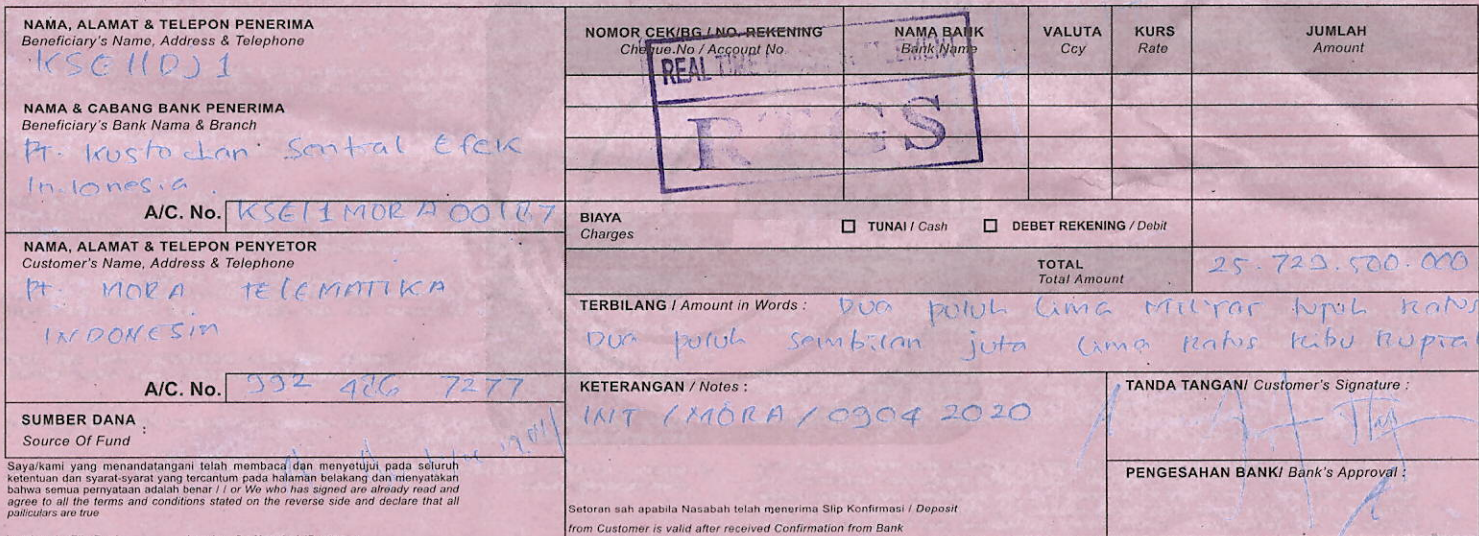 NAMA, ALAMAT & TELEPON PENERIMA
Beneficiary's Name, Address & Telephone
KSEI1DJ1
NAMA & CABANG BANK PENERIMA
Beneficiary's Bank Nama & Branch
PT. Kustodian Sentral Efek
Indonesia.
A/C. No. KSEI1MORA00187
NAMA, ALAMAT & TELEPON PENYETOR
Customer's Name, Address & Telephone
PT. MORA TELEMATIKA
INDONESIA
A/C. No. 992 426 7277
SUMBER DANA :
Source Of Fund
Saya/kami yang menandatangani telah membaca dan menyetujui pada seluruh
ketentuan dan syarat-syarat yang tercantum pada halaman belakang dan menyatakan
bahwa semua pernyataan adalah benar / I or We who has signed are already read and
agree to all the terms and conditions stated on the reverse side and declare that all
paliculars are true
NOMOR CEK/BG / NO. REKENING
Cheque.No / Account No.
NAMA BANK
Bank Name
VALUTA
Ccy
KURS
Rate
JUMLAH
Amount
REAL TIME
RTGS
BIAYA
Charges
TUNAI / Cash
DEBET REKENING / Debit
TOTAL
Total Amount
25.729.500.000
TERBILANG / Amount in Words : Dua puluh lima Milyar tujuh Ratus
Dua puluh sembilan juta lima Ratus Ribu Rupiah
KETERANGAN / Notes :
INT / MORA / 0904 2020
Setoran sah apabila Nasabah telah menerima Slip Konfirmasi / Deposit
from Customer is valid after received Confirmation from Bank
TANDA TANGAN/ Customer's Signature :
PENGESAHAN BANK/ Bank's Approval :